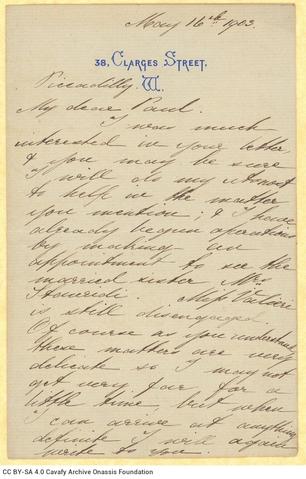 May 16th 1903.
38, CLARGES STREET.
Piccadilly. W.
My dear Paul.
I was much
interested in your letter
& you may be sure
I will do my utmost
to help in the matter
you mention; & I have
already begun operations
by making an
appointment to see the
married sister, Mrs
Miss
is still disengaged.
Of course as you understand
these matters are very
delicate so I may not
get very far for a
little time, but when
I can arrive at anything
definite I will again
write to you.
CC BY-SA 4.0 Cavafy Archive Onassis Foundation